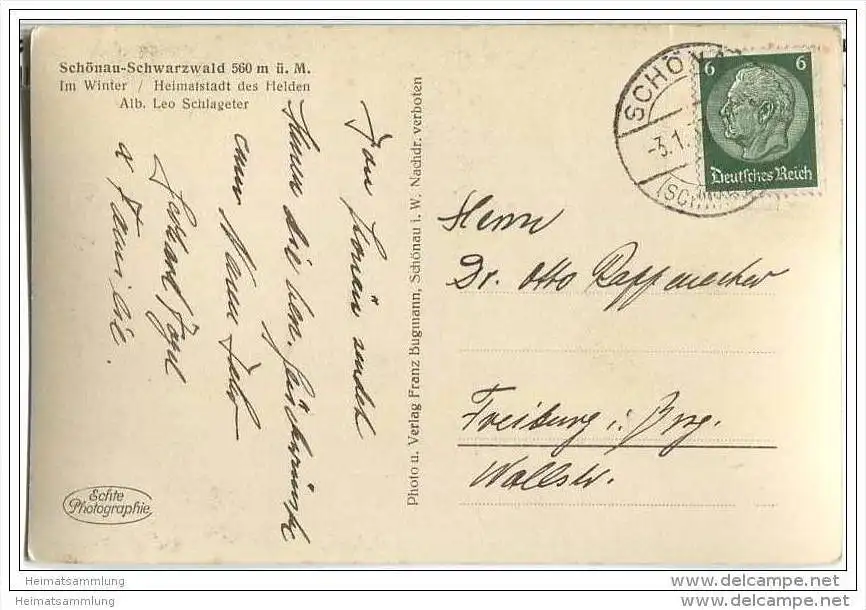 Schönau-Schwarzwald 560 m ü. M.
Im Winter / Heimatstadt des Helden
Alb. Leo Schlageter
Von Schönau sendet
Ihnen die ben. Glückwünsche
zum Neuen Jahr
& Familie.
Echte
Photographie
Photo u. Verlag Franz Bugmann, Schönau i. W. Nachdr. verboten
SCHÖNA
-3.1.
(SCHW
6 6
Deutsches Reich
Herrn
Dr. Otto Rappenecker
Freiburg i. Brsg.
Wallstr.
Heimatsammlung
Heimatsammlung
www.delcampe.net
www.delcampe.net